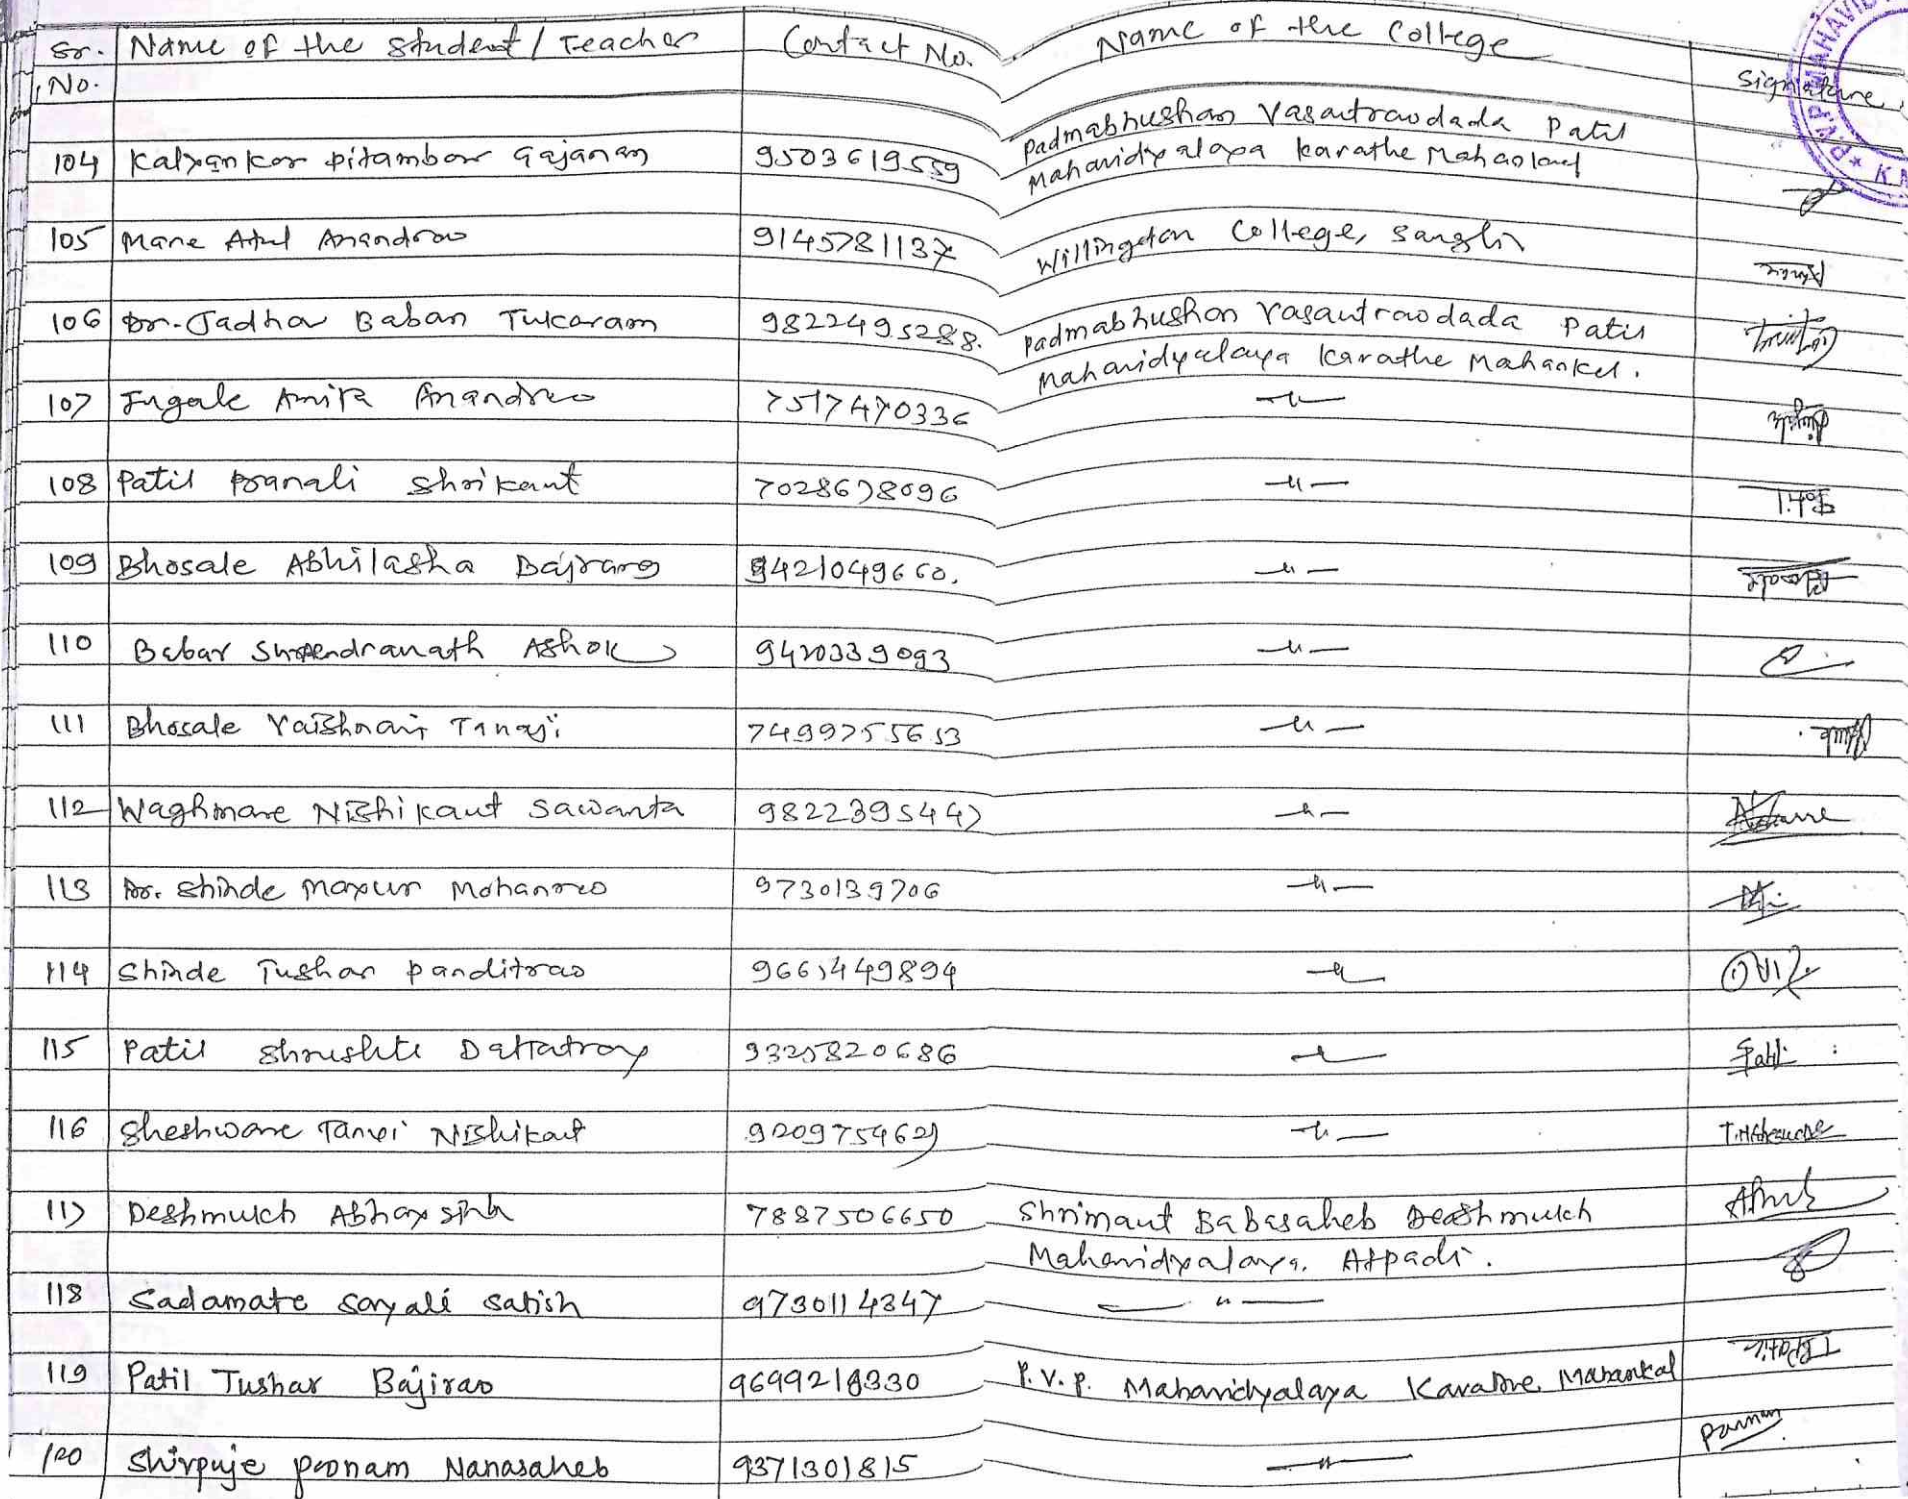 Sr. No. Name of the Student / Teacher Contact No. Name of the College Signature
104 Kalyankar Pitambar Gajanan 9503619559 Padmabhushan Vasantraodada Patil
Mahavidyalaya Karathe Mahankal
105 Mane Atul Anandrao 9145781137 Willingdon College, Sangli
106 Dr. Jadhav Baban Tukaram 9822495288. Padmabhushan Vasantraodada Patil
Mahavidyalaya Karathe Mahankel.
107 Jugale Amita Anandrao 7517470336 —"—
108 Patil Pranali Shrikant 7028678096 —"— Patil
109 Bhosale Abhilasha Bajrang 9421049660. —"— Bhosale
110 Babar Surendranath Ashok 9420339093 —"—
111 Bhosale Vaishnavi Tanaji 7499755653 —"—
112 Waghmare Nishikant Sawanta 9822395447 —"—
113 Dr. Shinde Mayur Mohanrao 9730139706 —"—
114 Shinde Tushar Panditrao 9665449894 —"—
115 Patil Shrushti Dattatray 9325820686 —"— Patil
116 Sheshware Tanvi Nishikant 9209754627 —"—
117 Deshmukh Abhaysinh 7887506650 Shrimant Babasaheb Deashmukh
Mahavidyalaya, Atpadi.
118 Sadamate Sayali Satish 9730114347 —"—
119 Patil Tushar Bajirao 9699218330 P.V.P. Mahavidyalaya Kavathe Mahankal TBPatil
120 Shirpuje Poonam Nanasaheb 9371301815 —"—